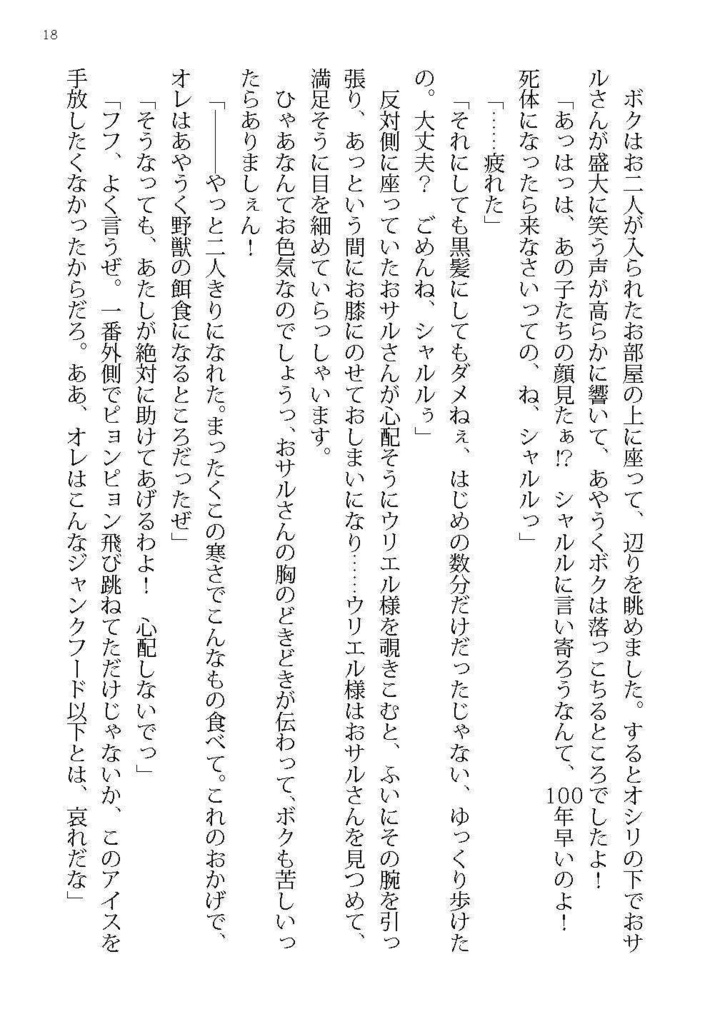 18
　ボクはお二人が入られたお部屋の上に座って、辺りを眺めました。するとオシリの下でおサ
ルさんが盛大に笑う声が高らかに響いて、あやうくボクは落っこちるところでしたよ！
「あっはっは、あの子たちの顔見たぁ⁉　シャルルに言い寄ろうなんて、100年早いのよ！
死体になったら来なさいっての、ね、シャルルっ」
「……疲れた」
「それにしても黒髪にしてもダメねぇ、はじめの数分だけだったじゃない、ゆっくり歩けた
の。大丈夫？　ごめんね、シャルルぅ」
　反対側に座っていたおサルさんが心配そうにウリエル様を覗きこむと、ふいにその腕を引っ
張り、あっという間にお膝にのせておしまいになり……ウリエル様はおサルさんを見つめて、
満足そうに目を細めていらっしゃいます。
　ひゃあなんてお色気なのでしょうっ、おサルさんの胸のどきどきが伝わって、ボクも苦しいっ
たらありましぇん！
「――やっと二人きりになれた。まったくこの寒さでこんなもの食べて。これのおかげで、
オレはあやうく野獣の餌食になるところだったぜ」
「そうなっても、あたしが絶対に助けてあげるわよ！　心配しないでっ」
「フフ、よく言うぜ。一番外側でピョンピョン飛び跳ねてただけじゃないか、このアイスを
手放したくなかったからだろ。ああ、オレはこんなジャンクフード以下とは、哀れだな」